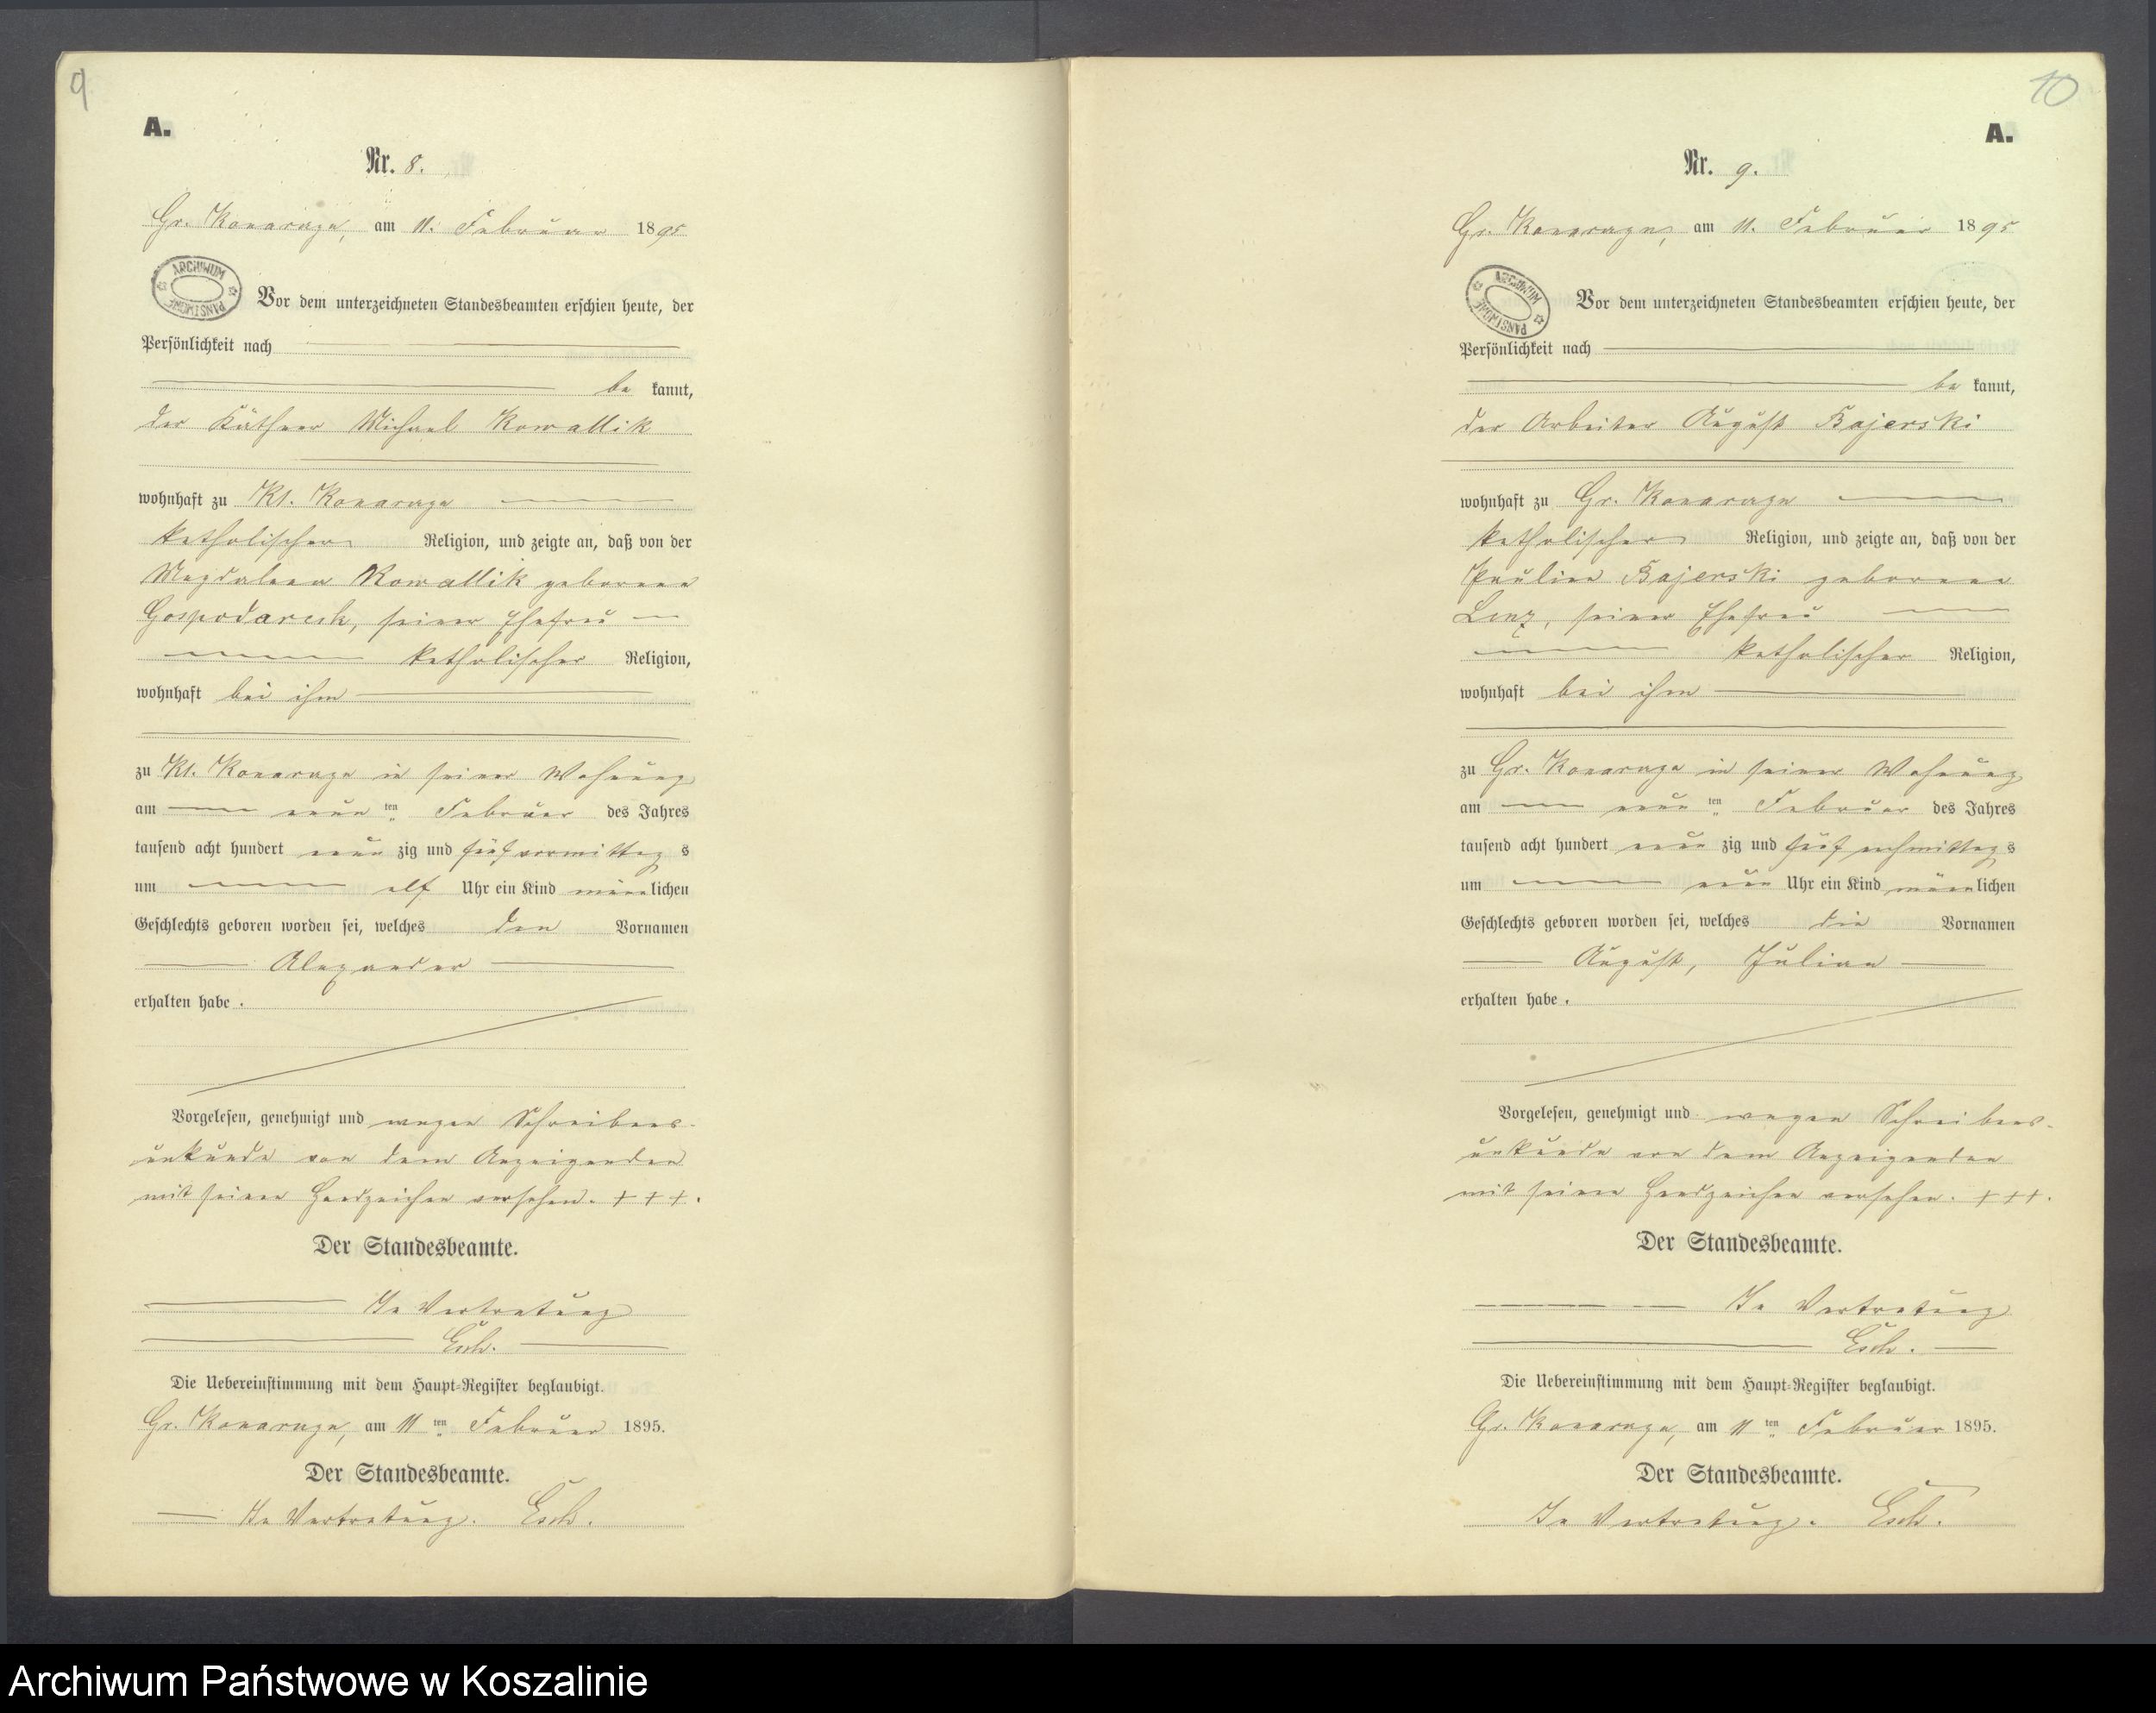 9
A.
Nr. 8.
Gr. Konarczyn, am 11. Februar 1895
ARCHIWUM PAŃSTWOWE
Vor dem unterzeichneten Standesbeamten erschien heute, der
Persönlichkeit nach
be kannt,
der Käthner Michael Kowallik
wohnhaft zu Kl. Konarczyn
katholischer Religion, und zeigte an, daß von der
Magdalena Kowallik geborene
Gospodareck, seiner Ehefrau
katholischer Religion,
wohnhaft bei ihm
zu Kl. Konarczyn in seiner Wohnung
am neun ten Februar des Jahres
tausend acht hundert neun zig und fünf vormittag s
um elf Uhr ein Kind männlichen
Geschlechts geboren worden sei, welches den Vornamen
Alexander
erhalten habe.
Vorgelesen, genehmigt und wegen Schreibens-
unkunde von dem Anzeigenden
mit seinen Handzeichen versehen. + + +.
Der Standesbeamte.
In Vertretung
Esch.
Die Uebereinstimmung mit dem Haupt-Register beglaubigt.
Gr. Konarczyn, am 11 ten Februar 1895.
Der Standesbeamte.
In Vertretung. Esch.
10
A.
Nr. 9.
Gr. Konarczyn, am 11. Februar 1895
ARCHIWUM PAŃSTWOWE
Vor dem unterzeichneten Standesbeamten erschien heute, der
Persönlichkeit nach
be kannt,
der Arbeiter August Bajerski
wohnhaft zu Gr. Konarczyn
katholischer Religion, und zeigte an, daß von der
Pauline Bajerski geborene
Lenz, seiner Ehefrau
katholischer Religion,
wohnhaft bei ihm
zu Gr. Konarczyn in seiner Wohnung
am neun ten Februar des Jahres
tausend acht hundert neun zig und fünf nachmittag s
um neun Uhr ein Kind männlichen
Geschlechts geboren worden sei, welches die Vornamen
August, Julian
erhalten habe.
Vorgelesen, genehmigt und wegen Schreibens-
unkunde von dem Anzeigenden
mit seinen Handzeichen versehen. + + +.
Der Standesbeamte.
In Vertretung
Esch.
Die Uebereinstimmung mit dem Haupt-Register beglaubigt.
Gr. Konarczyn, am 11 ten Februar 1895.
Der Standesbeamte.
In Vertretung. Esch.
Archiwum Państwowe w Koszalinie